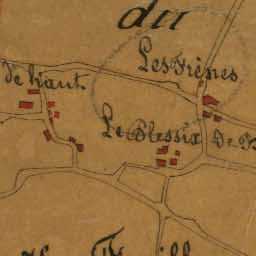 du
Les Frênes
de haut
Le Plessix de